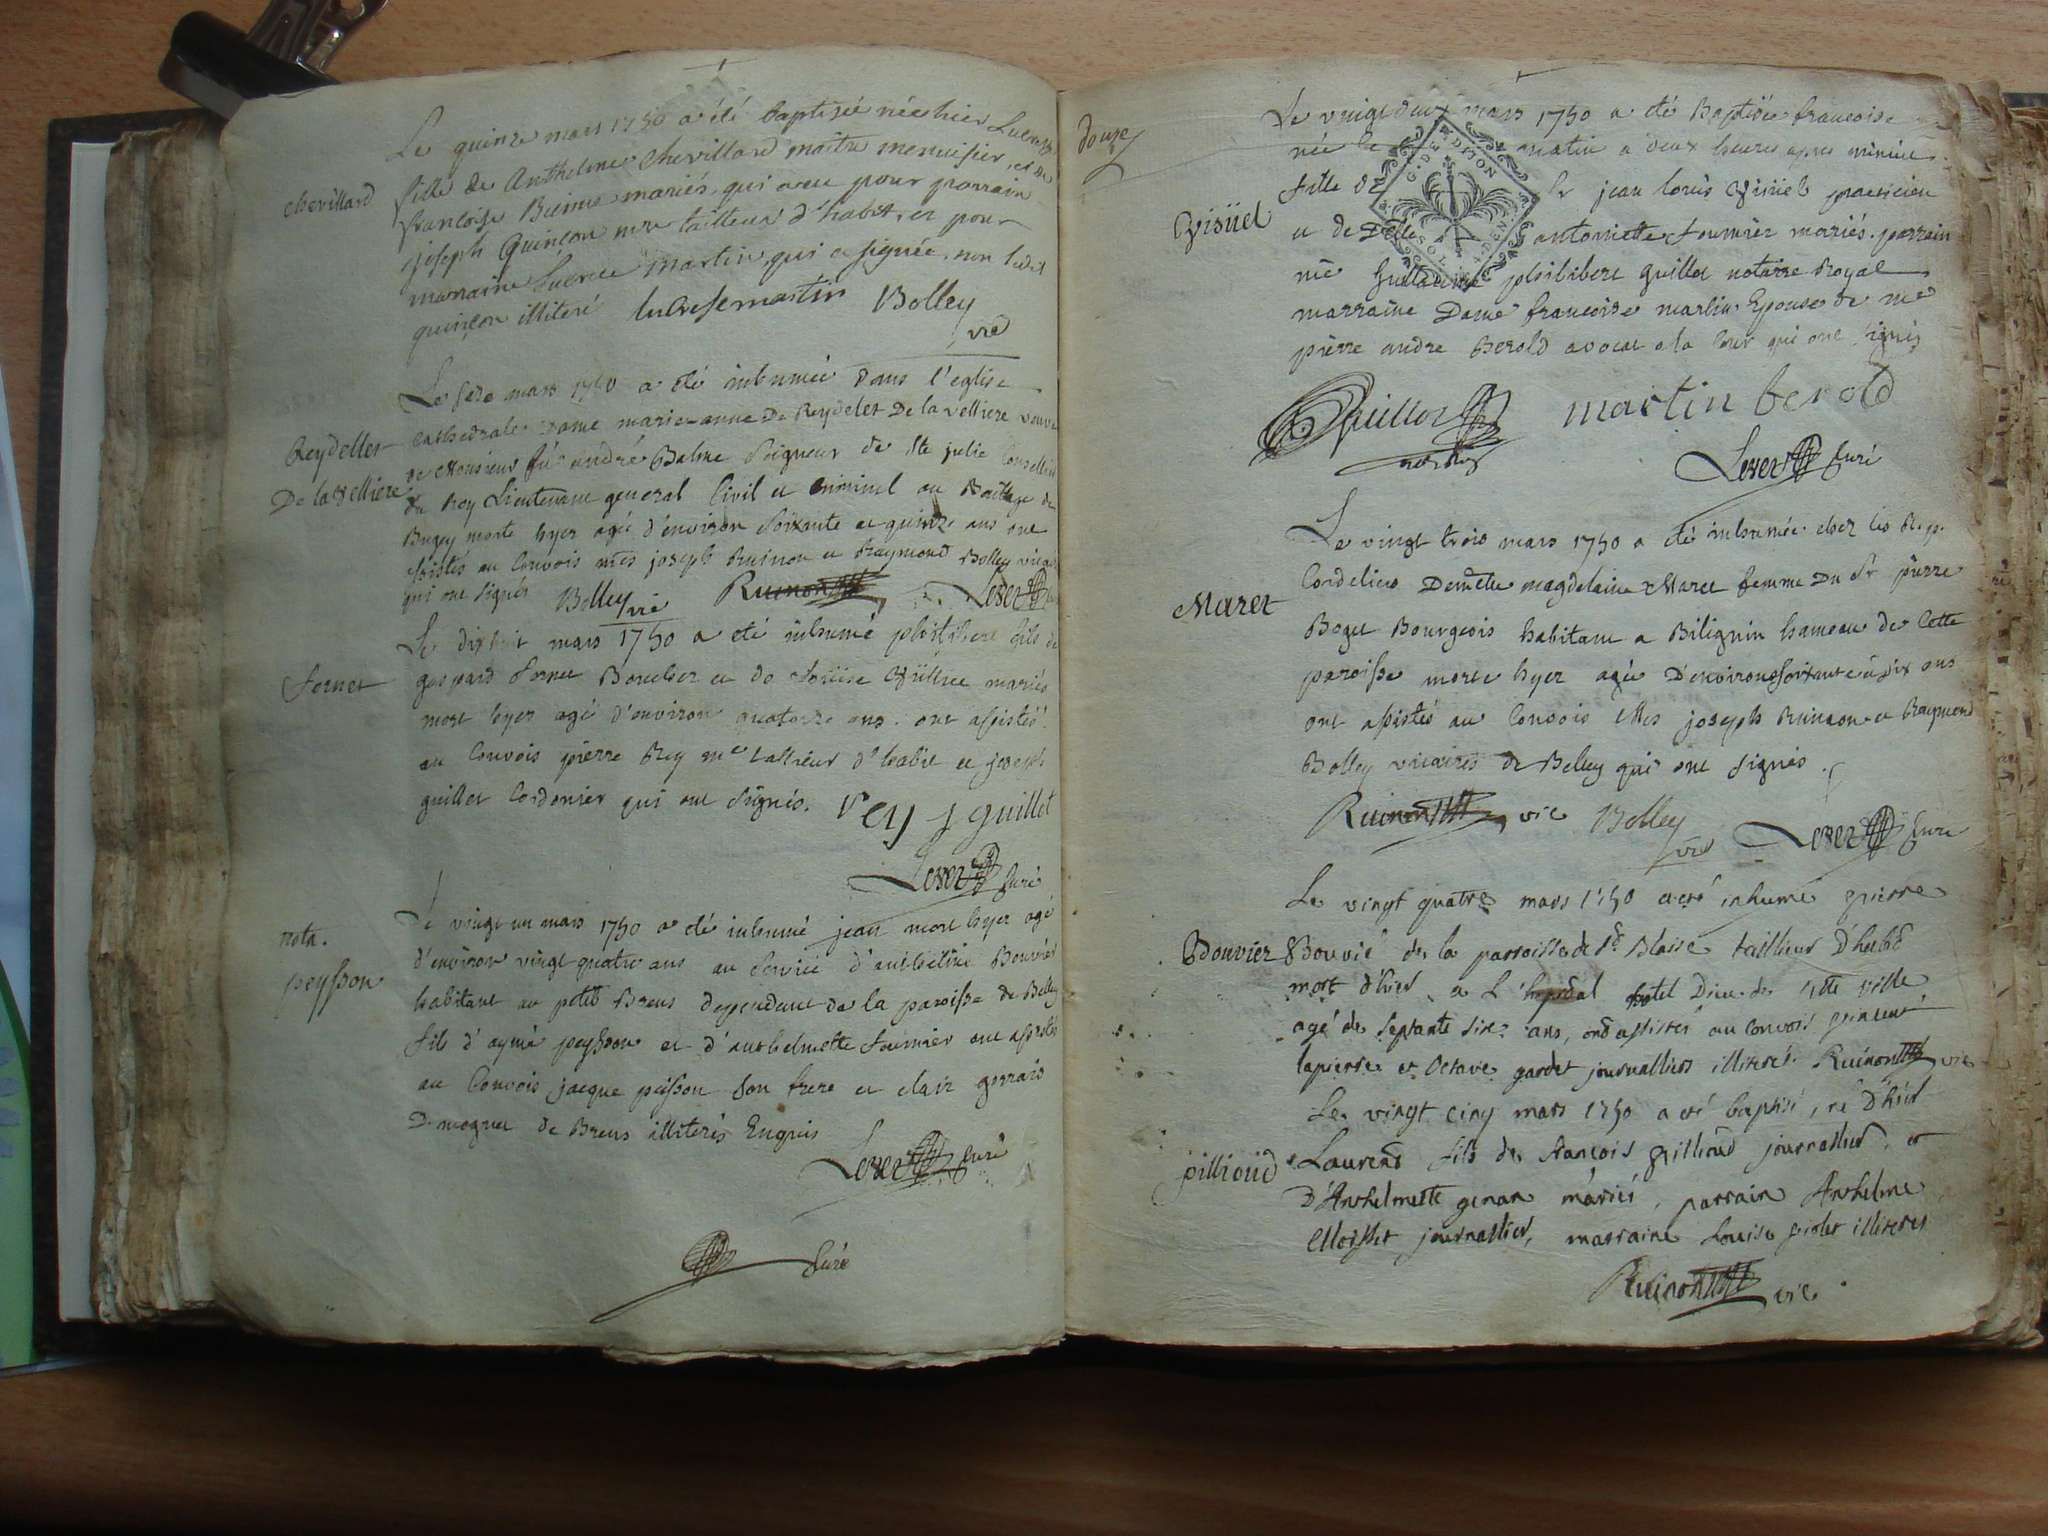 Le quinze mars 1750 a été baptisée née hier Lucresse
chevillard
fille de Anthelme Chevillard maitre menuisier, et de
françoise mariés, qui a eu pour parrain
joseph Quinçon mre tailleur d'habit, et pour
marraine Lucrece martin, qui a signée, non ledit
quinçon illiteré lucresse martin Bolley
vic
Le seze mars 1750 a été inhumée dans l'eglise
Reydellet
De la velliere
cathedrale Dame marie-anne De Reydelet De la velliere veuve
de Monsieur fû andré Balme Seigneur de Ste julie Conseiller
du Roy Lieutenant general Civil et criminel au Bailliage de
Bugey morte hyer agée d'environ soixante et quinze ans ont
assistés au Convois mres joseph Ruinon et Raymond Bolley vicaires
qui ont signés Bolley vic Ruinon
Le dix huit mars 1750 a été inhumé philibert fils de
fornet
gaspard fornet Boucher et de mariés
mort hyer agé d'environ quatorze ans. ont assistés
au Convois pierre Rey me tallieur d'habit et joseph
guillot Cordonier qui ont signés. rey j guillot
Curé
Le vingt un mars 1750 a été inhumé jean mort hyer agé
nota.
peysson
d'environ vingt quatre ans au service d'anthelme Bouvier
habitant au petit Brens dependant de la paroisse de Belley
fils d'aymé peysson et d'anthelmette fournier ont assistés
au Convois jacque peysson son frere et clair gervais
De mognet de Brens illiterés Enquis
Curé
Curé
douze
Le vingt deux mars 1750 a été Baptisée francoise
née le matin a deux heures apres minuit
G. DE DIJON
Visüel
fille de Sr jean louis Visüel praticien
et de Delle antoinette fournier mariés. parrain
me Guillaume philibert Guillot notaire Royal
marraine Dame francoise martin Epouse de me
pierre andre Berold avocat a la Cour qui ont signés
Guillot martin berold
Curé
Le vingt trois mars 1750 a été inhumée chez les R. p.
Maret
Cordeliers Demelle magdelaine Maret femme Du Sr pierre
Boget Bourgeois habitant a Bilignin hameau de Cette
paroisse morte hyer agée D'environ soixante et dix ans
ont assistés au Convois Mes joseph Ruinon et Raymond
Bolley vicaires de Belley qui ont signés
Ruinon vic Bolley
vic Curé
Le vingt quatre mars 1750 a eté inhumé pierre
Bouvier
Bouvié de la parroisse de St Blaise taillieur D'habit
mort d'hier a L'hopital hotel Dieu de cette ville
agé de septante six ans, ont assistes au Convois
lapierre et Octave gardet journalliers illiterés. Ruinon vic
Le vingt cinq mars 1750 a eté baptisé, né D'hier
pillioüd
Laurent fils de François pillioud journallier, et
D'Anthelmette mariés, parrain Anthelme
journallier, marraine Louise illiterés
Ruinon vic